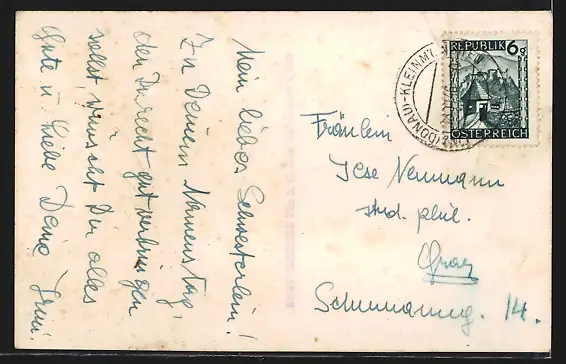 Mein liebes Schwesterlein!
Zu Deinem Namenstag,
den Du recht gut verbringen
sollst, wünscht Dir alles
Gute u. Liebe Deine
REPUBLIK 6g
ÖSTERREICH
(DONAU)-KLEINMÜN
Fräulein
Ilse Neumann
stud. phil.
Graz
Schumanng. 14.